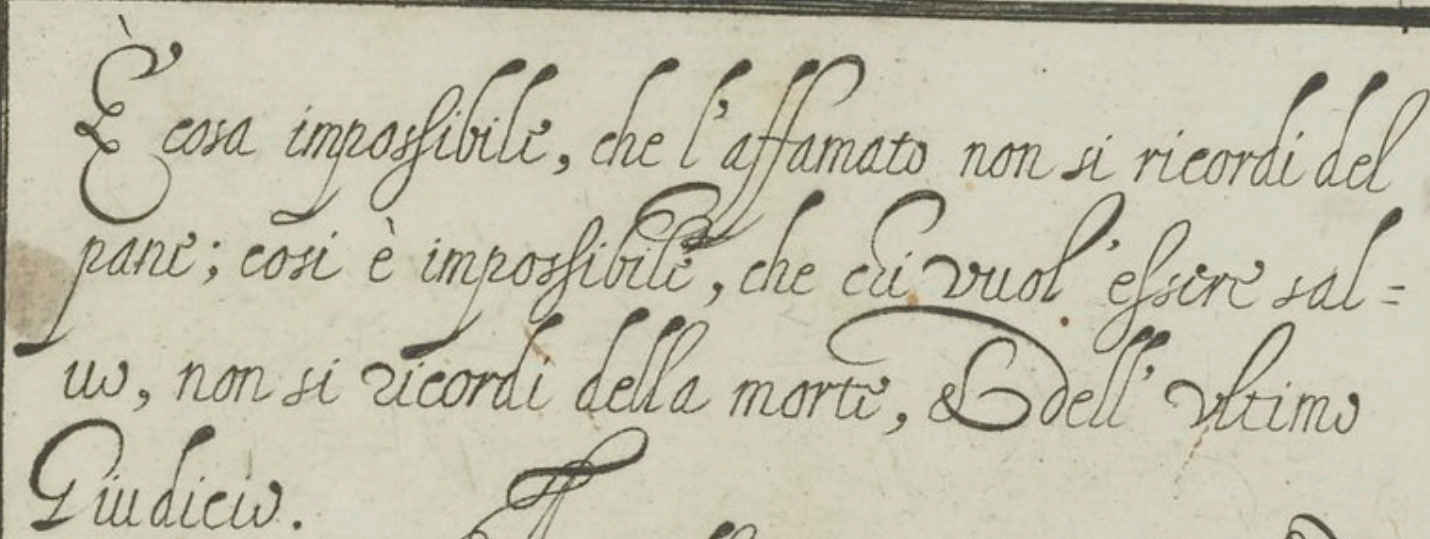 È cosa impossibile, che l'affamato non si ricordi del
pane; cosi è impossibile, che chi vuol'essere sal=
uo, non si ricordi della morte, & dell'vltimo
Giudicio.